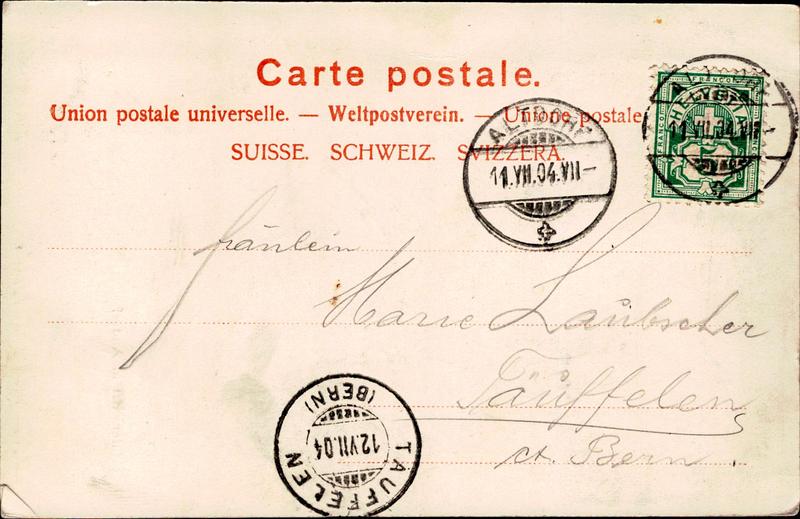 Carte postale.
Union postale universelle. — Weltpostverein. — Unione postale
SUISSE. SCHWEIZ. SVIZZERA.
FRANCO
HELVETIA
5
11.VII.04.VII-
ALTDORF
11.VII.04.VII-
Fräulein
Marie Laubscher
Täuffelen
ct. Bern.
TAUFFELEN
12.VII.04
(BERN)